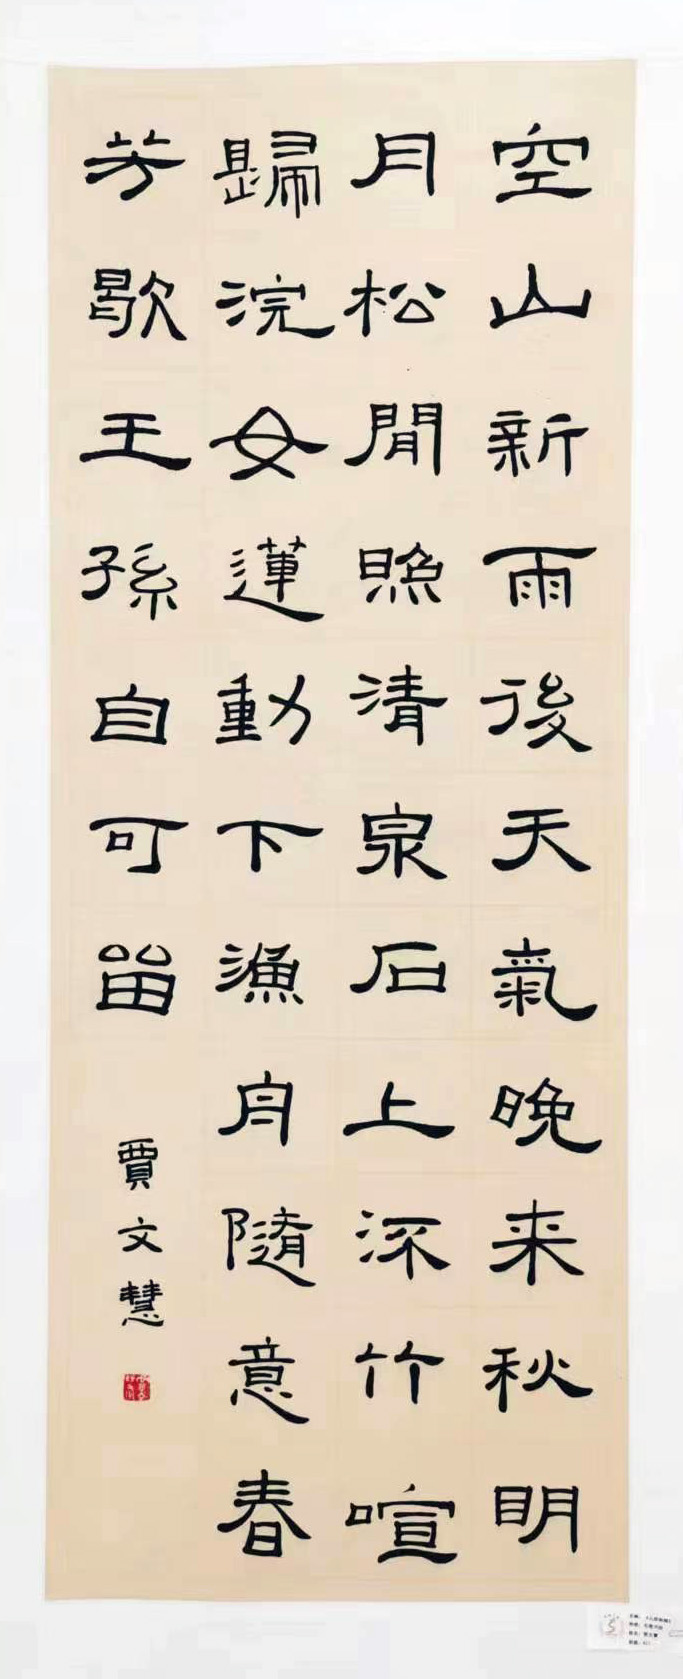 空山新雨後天氣晚来秋明
月松閒照清泉石上深竹喧
歸浣女蓮動下漁舟隨意春
芳歇王孫自可留
賈文慧